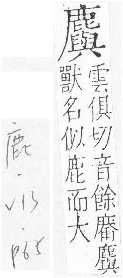 雲俱切音餘麔
獸名似鹿而大
鹿
.
V13
.
p65